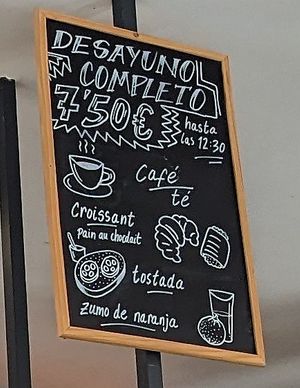 DESAYUNO
COMPLETO
7'50€
hasta
las 12:30
Café
té
Croissant
Pain au chocolait
tostada
Zumo de naranja